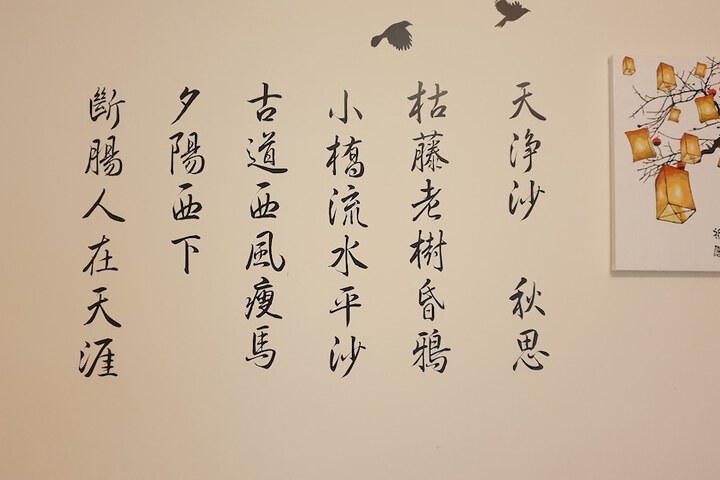 天净沙 秋思
枯藤老樹昏鴉
小橋流水平沙
古道西風瘦馬
夕陽西下
斷腸人在天涯